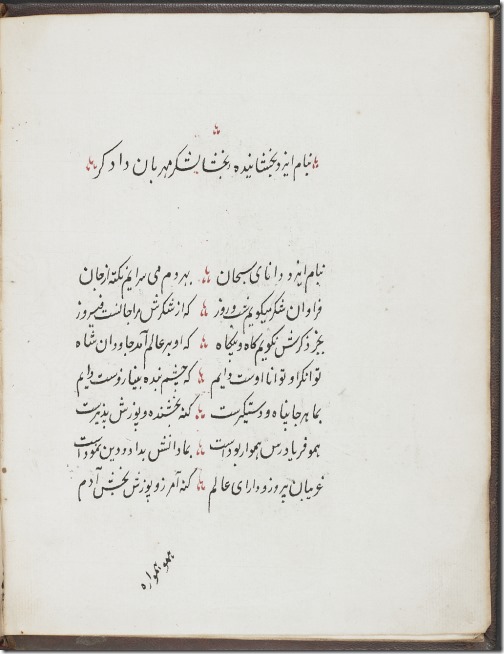 بنام ایزد بخشاینده بخشایشگر مهربان دادگر
بنام ایزد دانای سبحان بهر دم می سرایم نکته از جان
فراوان شکر میگویم شب و روز که از شکرش مرا جانست فیروز
بجز ذکرش نگویم گاه و بیگاه که او بر عالم آمد جاودان شاه
توانگر او توانا اوست دایم که چشم بنده بینا زوست دایم
بما هر جا پناه و دستگیرست گنه بخشنده و پوزش پذیرست
همو فریادرس هموار بوداست بما دانش بداد و دین نموداست
غریبان پرور و دارای عالم گنه آمرز و پوزش بخش آدم
همو همواره